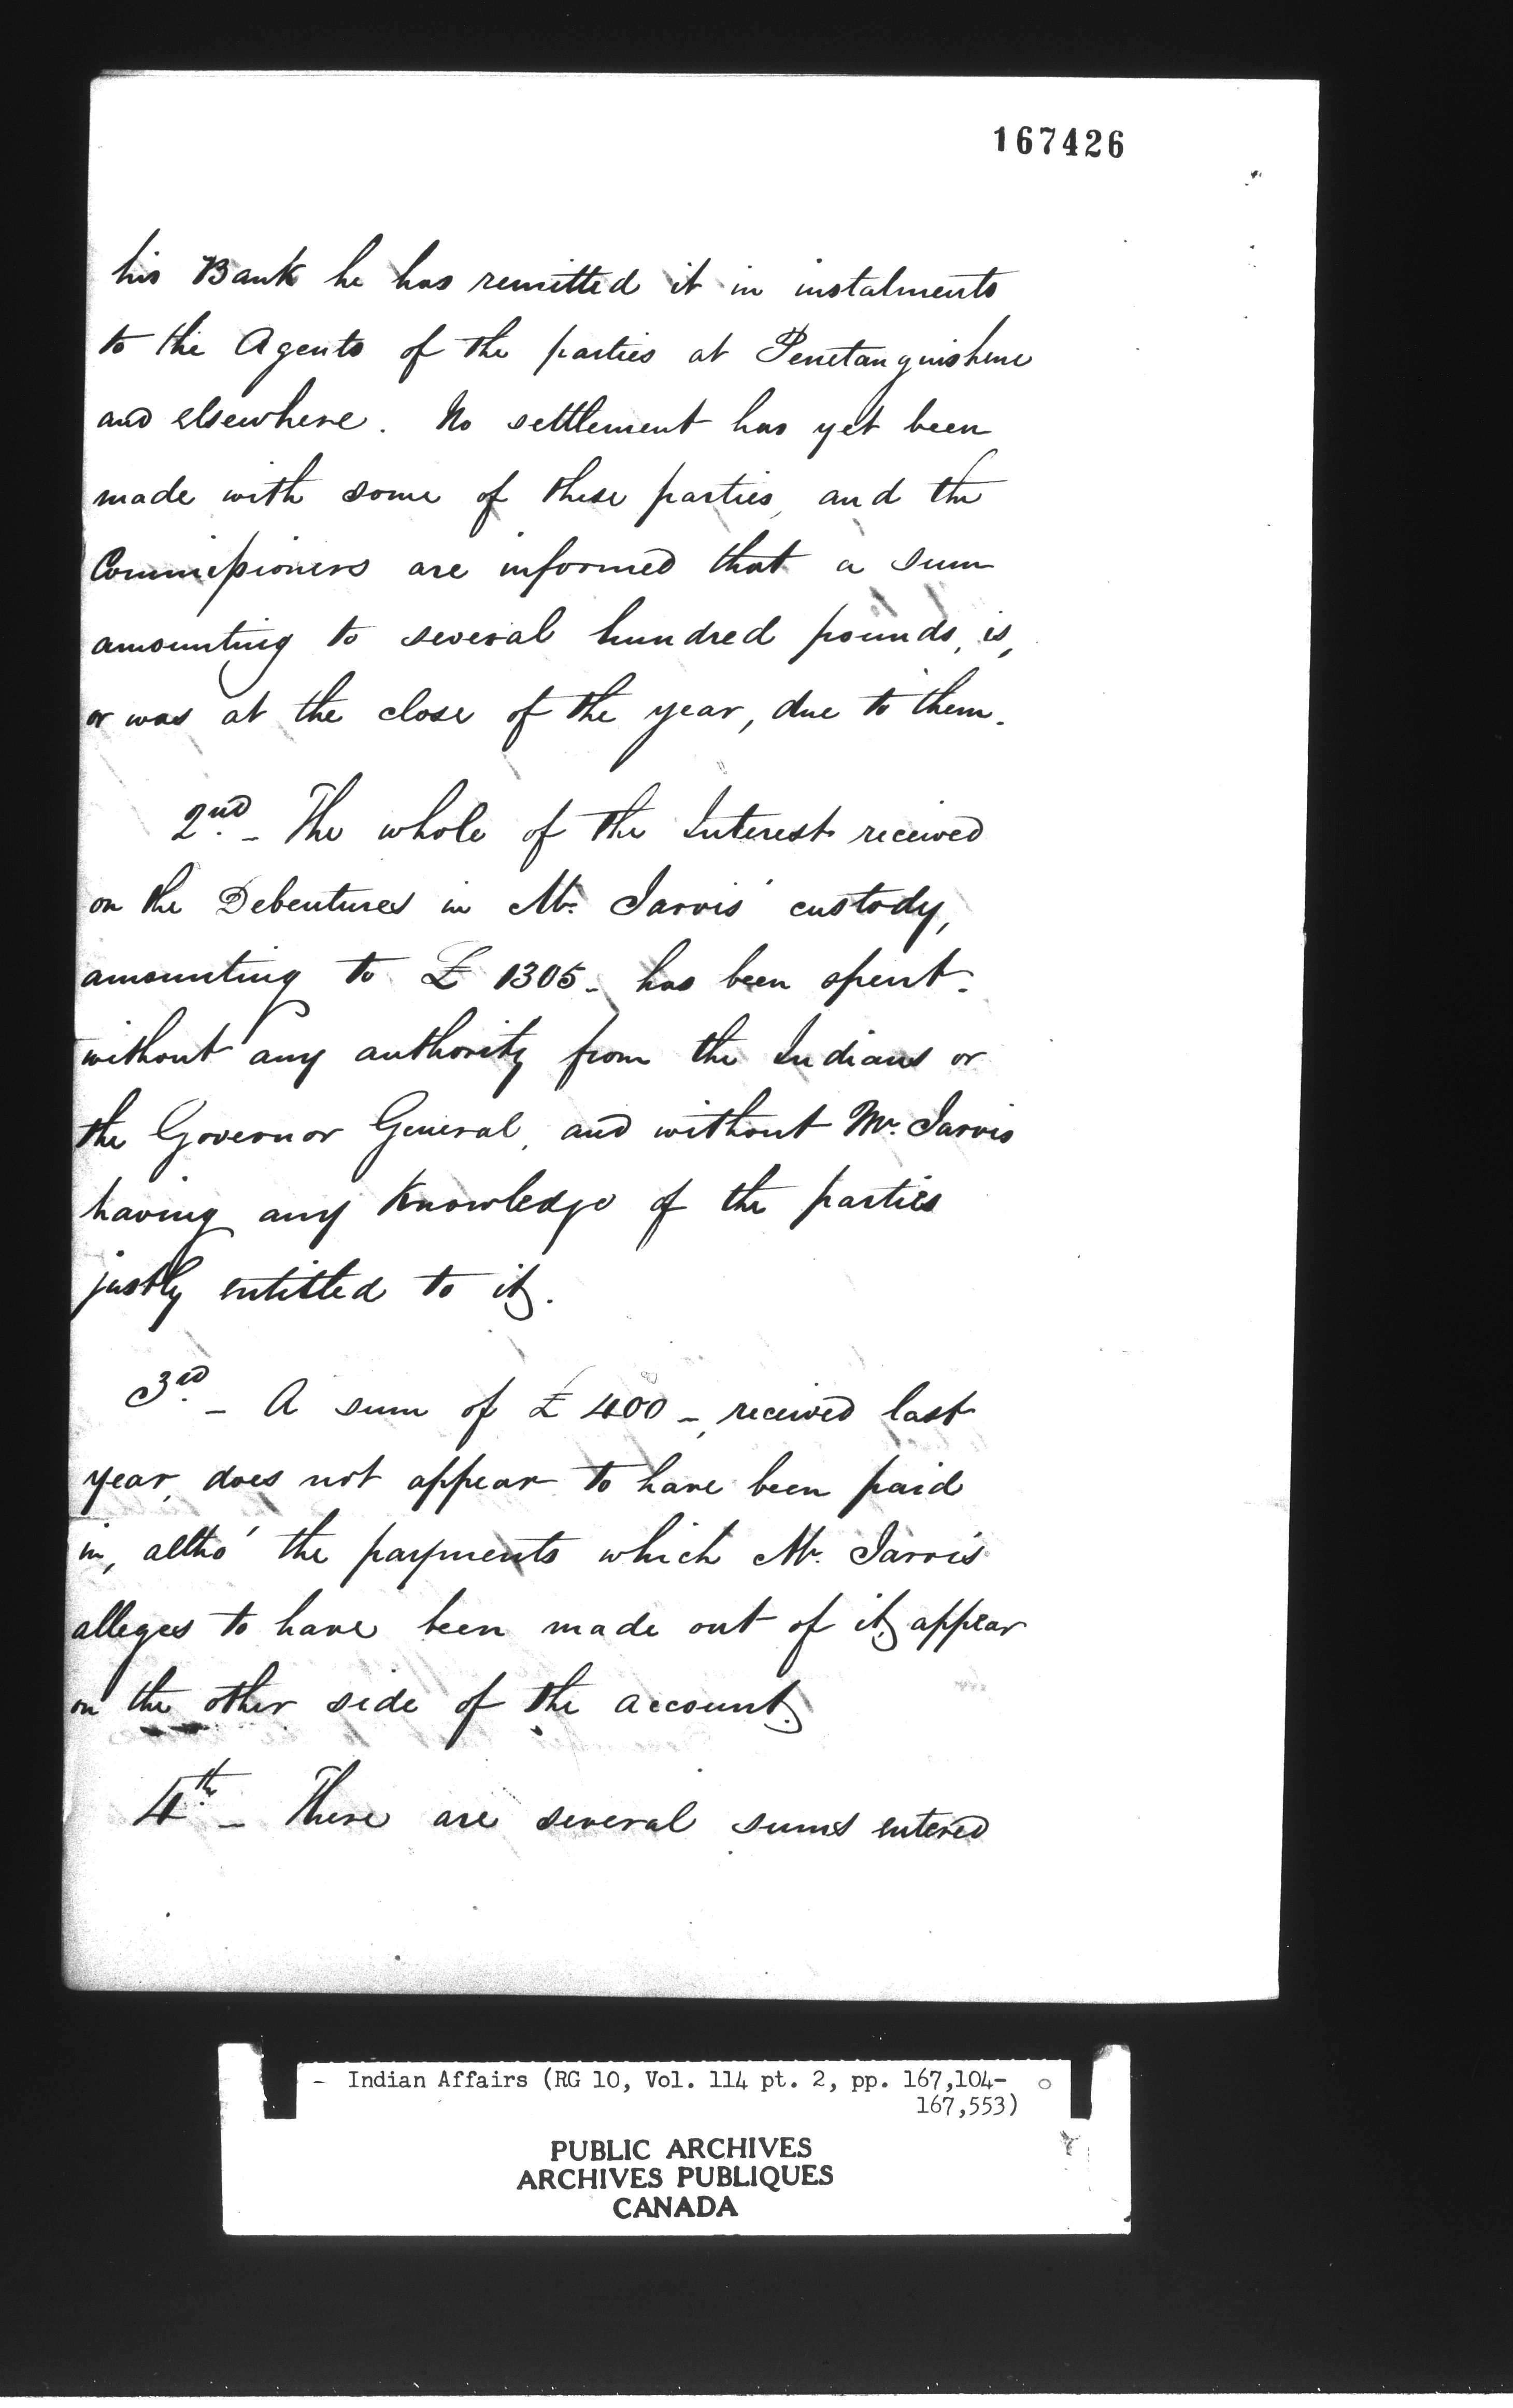 167426
his Bank he has remitted it in instalments
to the Agents of the parties at Penetanguishene
and elsewhere. No settlement has yet been
made with some of these parties, and the
Commissioners are informed that a sum
amounting to several hundred pounds, is,
or was at the close of the year, due to them.
2nd. - The whole of the Interest received
on the Debentures in Mr. Jarvis' custody,
amounting to £ 1305 - has been spent
without any authority from the Indians or
the Governor General, and without Mr. Jarvis
having any Knowledge of the parties
justly entitled to it.
3rd. - A sum of £ 400 -, received last
year, does not appear to have been paid
in, altho' the payments which Mr. Jarvis
alleges to have been made out of it, appear
on the other side of the account.
4th. - There are several sums entered
- Indian Affairs (RG 10, Vol. 114 pt. 2, pp. 167,104-
167,553)
PUBLIC ARCHIVES
ARCHIVES PUBLIQUES
CANADA